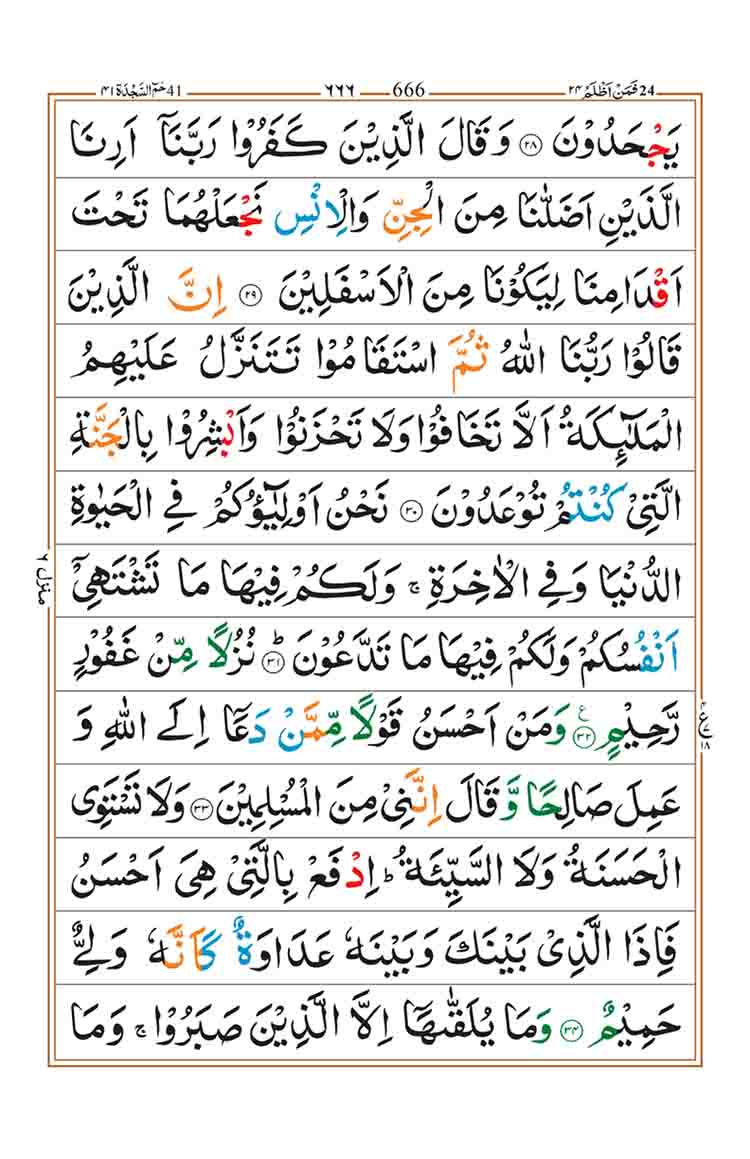 41 حٰمٓ السَّجْدَة ٤١ ٦٦٦ 666 فَمَنْ اَظْلَمُ 24 ٢٤
يَجْحَدُوْنَ ۝٢٨ وَ قَالَ الَّذِيْنَ كَفَرُوْا رَبَّنَاۤ اَرِنَا
الَّذَيْنِ اَضَلّٰنَا مِنَ الْجِنِّ وَالْاِنْسِ نَجْعَلْهُمَا تَحْتَ
اَقْدَامِنَا لِيَكُوْنَا مِنَ الْاَسْفَلِيْنَ ۝٢٩ اِنَّ الَّذِيْنَ
قَالُوْا رَبُّنَا اللّٰهُ ثُمَّ اسْتَقَامُوْا تَتَنَزَّلُ عَلَيْهِمُ
الْمَلٰٓئِكَةُ اَلَّا تَخَافُوْا وَلَا تَحْزَنُوْا وَاَبْشِرُوْا بِالْجَنَّةِ
الَّتِيْ كُنْتُمْ تُوْعَدُوْنَ ۝٣٠ نَحْنُ اَوْلِيٰٓؤُكُمْ فِي الْحَيٰوةِ
الدُّنْيَا وَفِي الْاٰخِرَةِ ۚ وَلَكُمْ فِيْهَا مَا تَشْتَهِيْۤ
اَنْفُسُكُمْ وَلَكُمْ فِيْهَا مَا تَدَّعُوْنَ ۝٣١ؕ نُزُلًا مِّنْ غَفُوْرٍ
رَّحِيْمٍ ۝٣٢ع وَمَنْ اَحْسَنُ قَوْلًا مِّمَّنْ دَعَاۤ اِلَى اللّٰهِ وَ
عَمِلَ صَالِحًا وَّ قَالَ اِنَّنِيْ مِنَ الْمُسْلِمِيْنَ ۝٣٣ وَلَا تَسْتَوِي
الْحَسَنَةُ وَلَا السَّيِّئَةُ ؕ اِدْفَعْ بِالَّتِيْ هِيَ اَحْسَنُ
فَاِذَا الَّذِيْ بَيْنَكَ وَبَيْنَهٗ عَدَاوَةٌ كَاَنَّهٗ وَلِيٌّ
حَمِيْمٌ ۝٣٤ وَمَا يُلَقّٰىهَاۤ اِلَّا الَّذِيْنَ صَبَرُوْا ۚ وَمَا
منزل ٦
ع ١٨